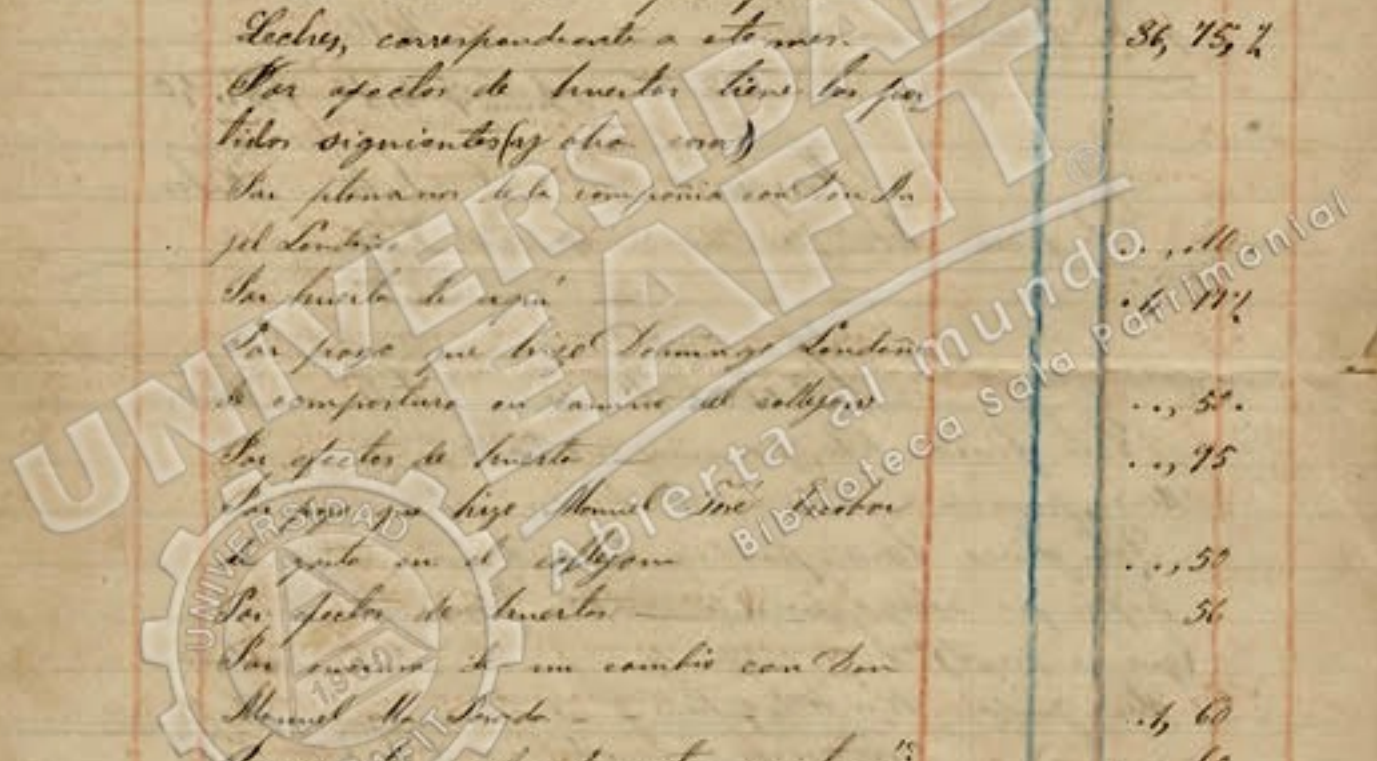 Leches, correspondiente a este mes. 86, 75, ½
Por efectos de huertas tiene las par
tidas siguientes (y otra cosa)
Por platanos de la compañia con Don An
jel Londoño .., 40
Por huerta de aqui
Por pago que hizo Domingo Londoño
de compostura en camino del callejon .., 50.
Por efectos de huerta .., 95
Por pago que hizo Manuel José Escobar
de gasto en el callejon .., 50
Por efectos de huertas 56
Por encima de un cambio con Don
Manuel Ma 1, 60
UNIVERSIDAD
EAFIT
Abierta al mundo
Biblioteca Sala Patrimonial
UNIVERSIDAD
1960
EAFIT